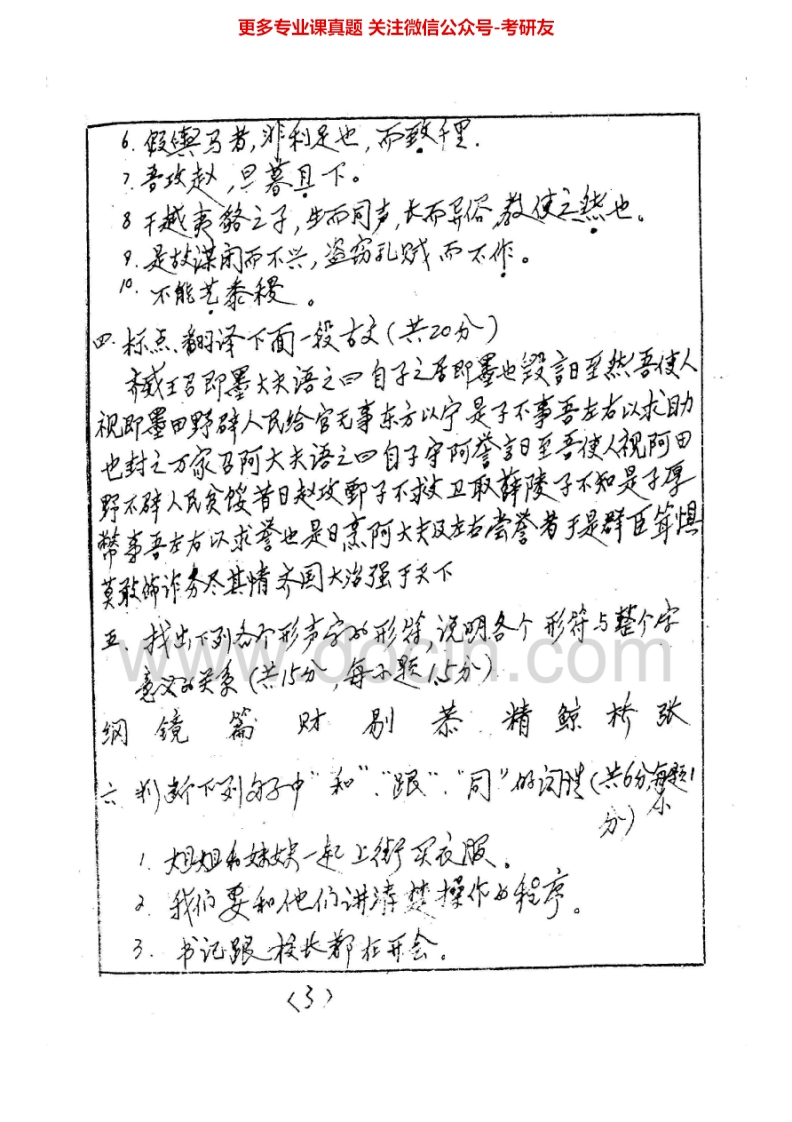 更多专业课真题 关注微信公众号-考研友
6. 假舆马者,非利足也,而致千里.
7. 吾攻赵,旦暮且下。
8 干越夷貉之子,生而同声,长而异俗,教使之然也。
9. 是故谋闭而不兴,盗窃乱贼而不作。
10. 不能艺黍稷。
四.标点、翻译下面一段古文(共20分)
齐威王召即墨大夫语之曰自子之居即墨也毁言日至然吾使人
视即墨田野辟人民给官无事东方以宁是子不事吾左右以求助
也封之万家召阿大夫语之曰自子守阿誉言日至吾使人视阿田
野不辟人民贫馁昔日赵攻鄄子不救卫取薛陵子不知是子厚
币事吾左右以求誉也是日烹阿大夫及左右尝誉者于是群臣耸惧
莫敢饰诈务尽其情齐国大治强于天下
五、找出下列各个形声字的形符,说明各个形符与整个字
意义的关系(共15分,每小题1.5分)
纲 镜 篇 财 剔 恭 精 鲸 桥 张
六 判断下列句子中"和"、"跟"、"同"的词性(共6分,每小题1
分)
1. 姐姐和妹妹一起上街买衣服。
2. 我们要和他们讲清楚操作的程序。
3. 书记跟校长都在开会。
(3)
www.docin.com